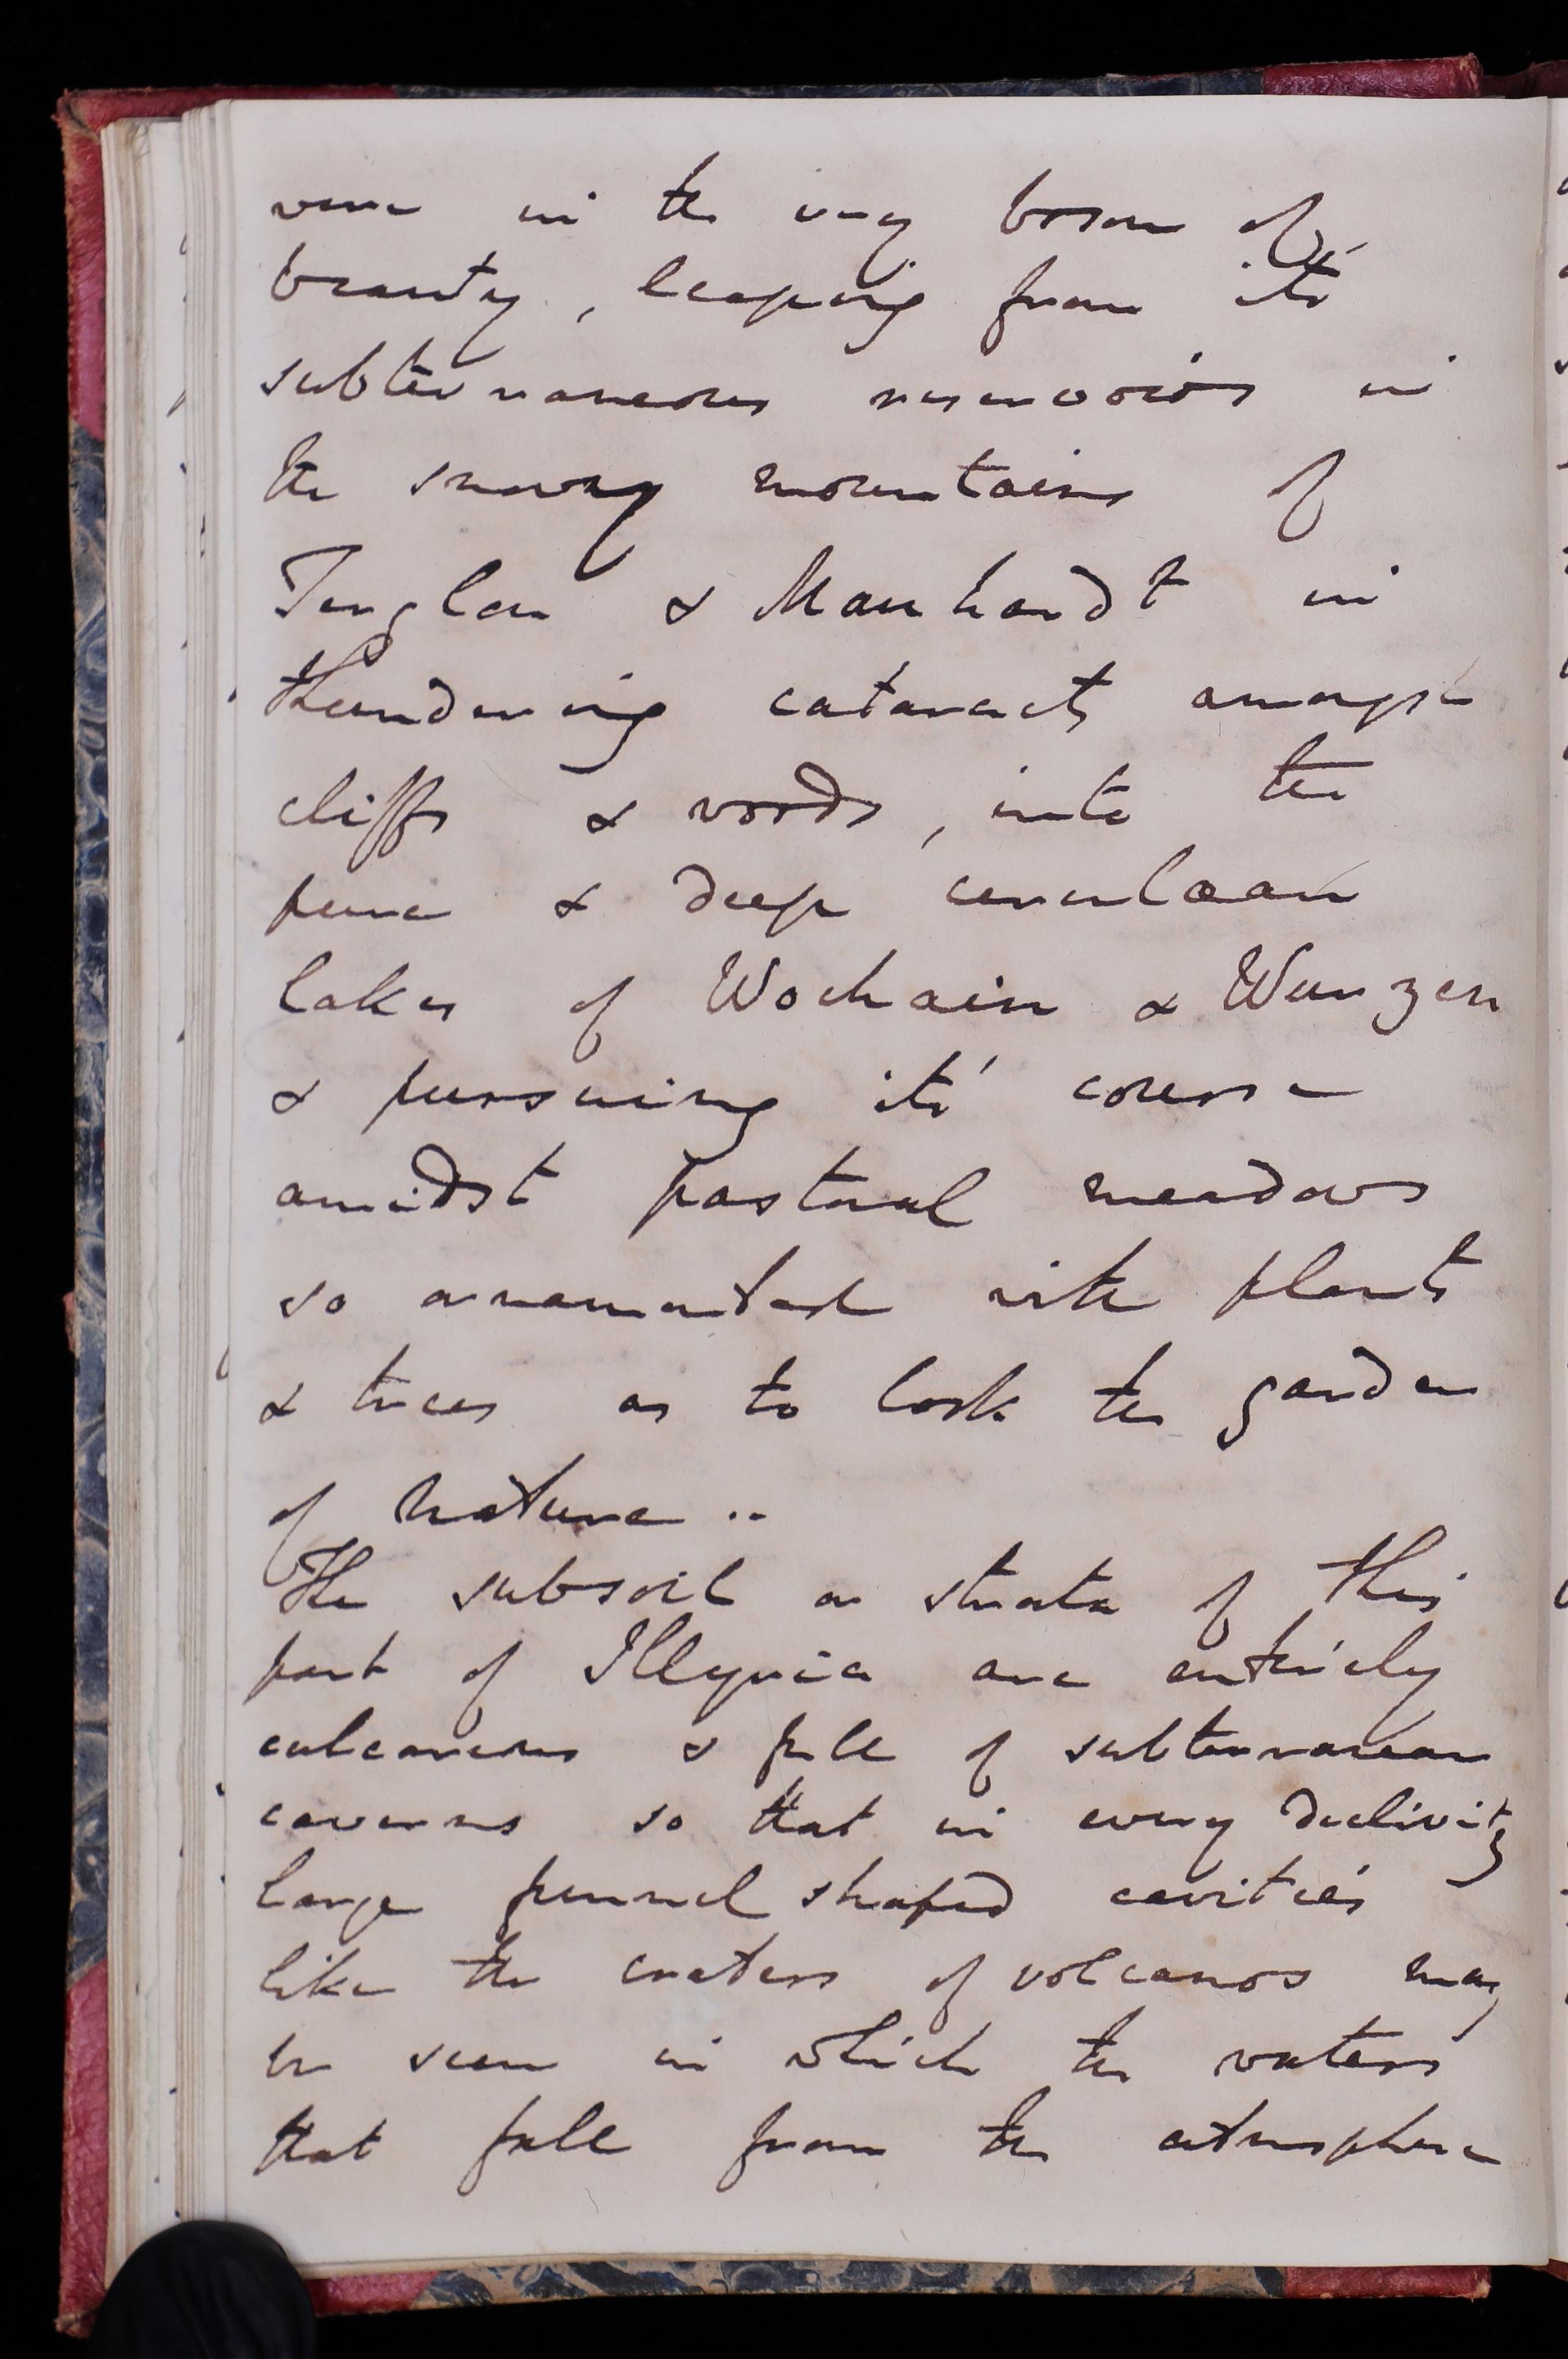 were in the very bosom of
beauty, leaping from its
subterraneous reservoirs in
the snowy mountains of
Terglou & Manhardt in
thundering cataracts amongst
cliffs & woods, into the
pure & deep cerulaean
lakes of Wochain & Wurzen
& pursuing its course
amidst pastoral meadows
so ornamented with plants
& trees as to look the garden
of nature ..
The subsoil or strata of this
part of Illyria are entirely
calcareous & full of subterranean
caverns so that in every declivity
large funnel shaped cavities
like the craters of volcanos may
be seen in which the waters
that fall from the atmosphere